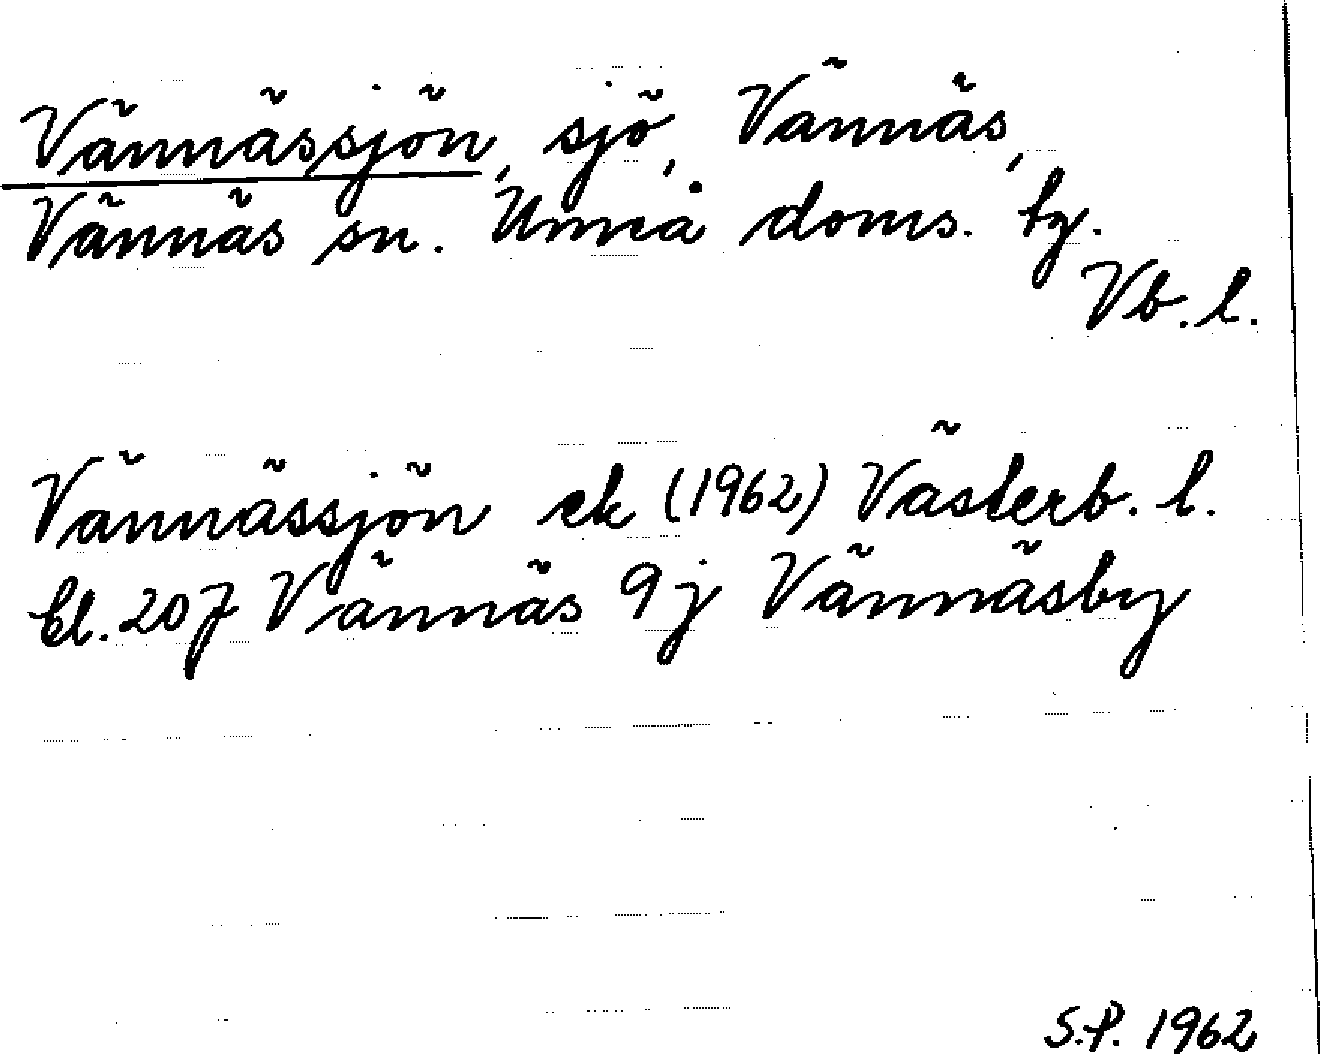 Vännässjön, sjö, Vännäs,
Vännäs sn. Umeå doms. tg.
Vb. l.
Vännässjön ek (1962) Västerb. l.
bl. 20 J Vännäs 9 j Vännäsby
S.P. 1962